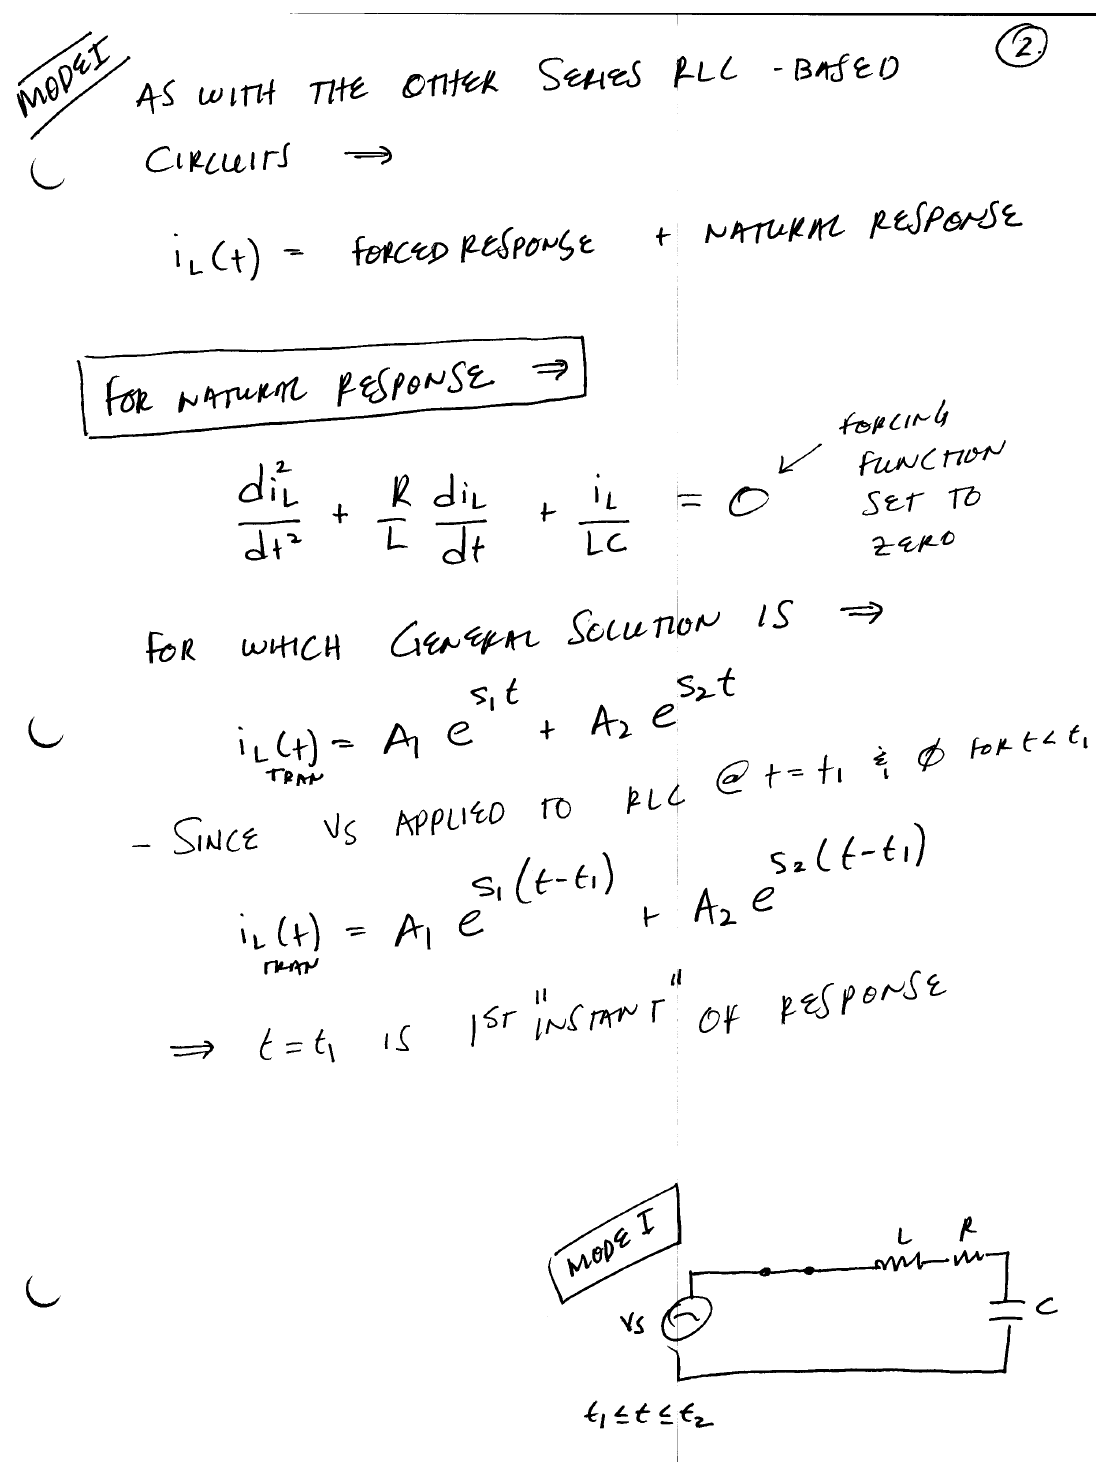 MODE I
2.
AS WITH THE OTHER SERIES RLC - BASED
CIRCUITS ⇒
iL(t) = FORCED RESPONSE + NATURAL RESPONSE
FOR NATURAL RESPONSE ⇒
diL²/dt² + R/L diL/dt + iL/LC = 0
FORCING
FUNCTION
SET TO
ZERO
FOR WHICH GENERAL SOLUTION IS ⇒
iL(t) = A₁ e^s₁t + A₂ e^s₂t
TRAN
- SINCE VS APPLIED TO RLC @ t = t₁ & ϕ FOR t < t₁
iL(t) = A₁ e^s₁(t-t₁) + A₂ e^s₂(t-t₁)
TRAN
⇒ t = t₁ IS 1ST "INSTANT" OF RESPONSE
MODE I
L R
VS
C
t₁ ≤ t ≤ t₂